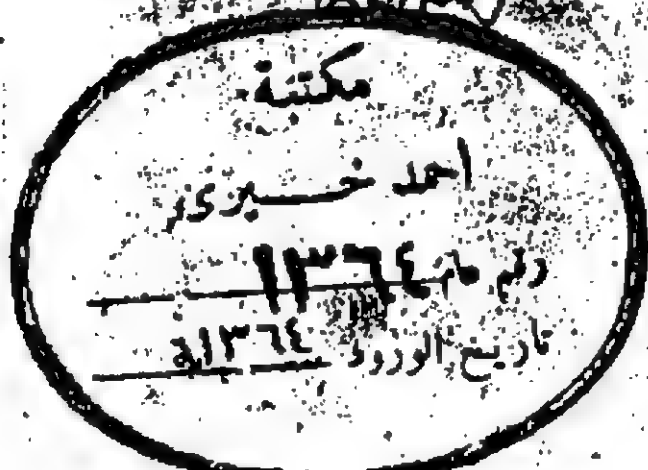 مكتبة
احمد خيرى
رقم م ١٣٦٤
تاريخ الورود ١٣٦٤